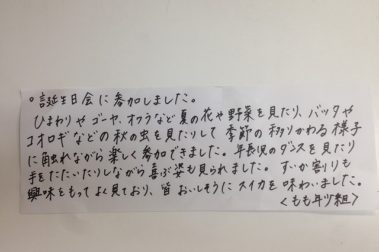 ○誕生日会に参加しました。
ひまわりやゴーヤ、オクラなど夏の花や野菜を見たり、バッタや
コオロギなどの秋の虫を見たりして季節の移りかわる様子
に触れながら楽しく参加できました。年長児のダンスを見たり
手をたたいたりしながら喜ぶ姿も見られました。すいか割りも
興味をもってよく見ており、皆おいしそうにスイカを味わいました。
<もも年少組>